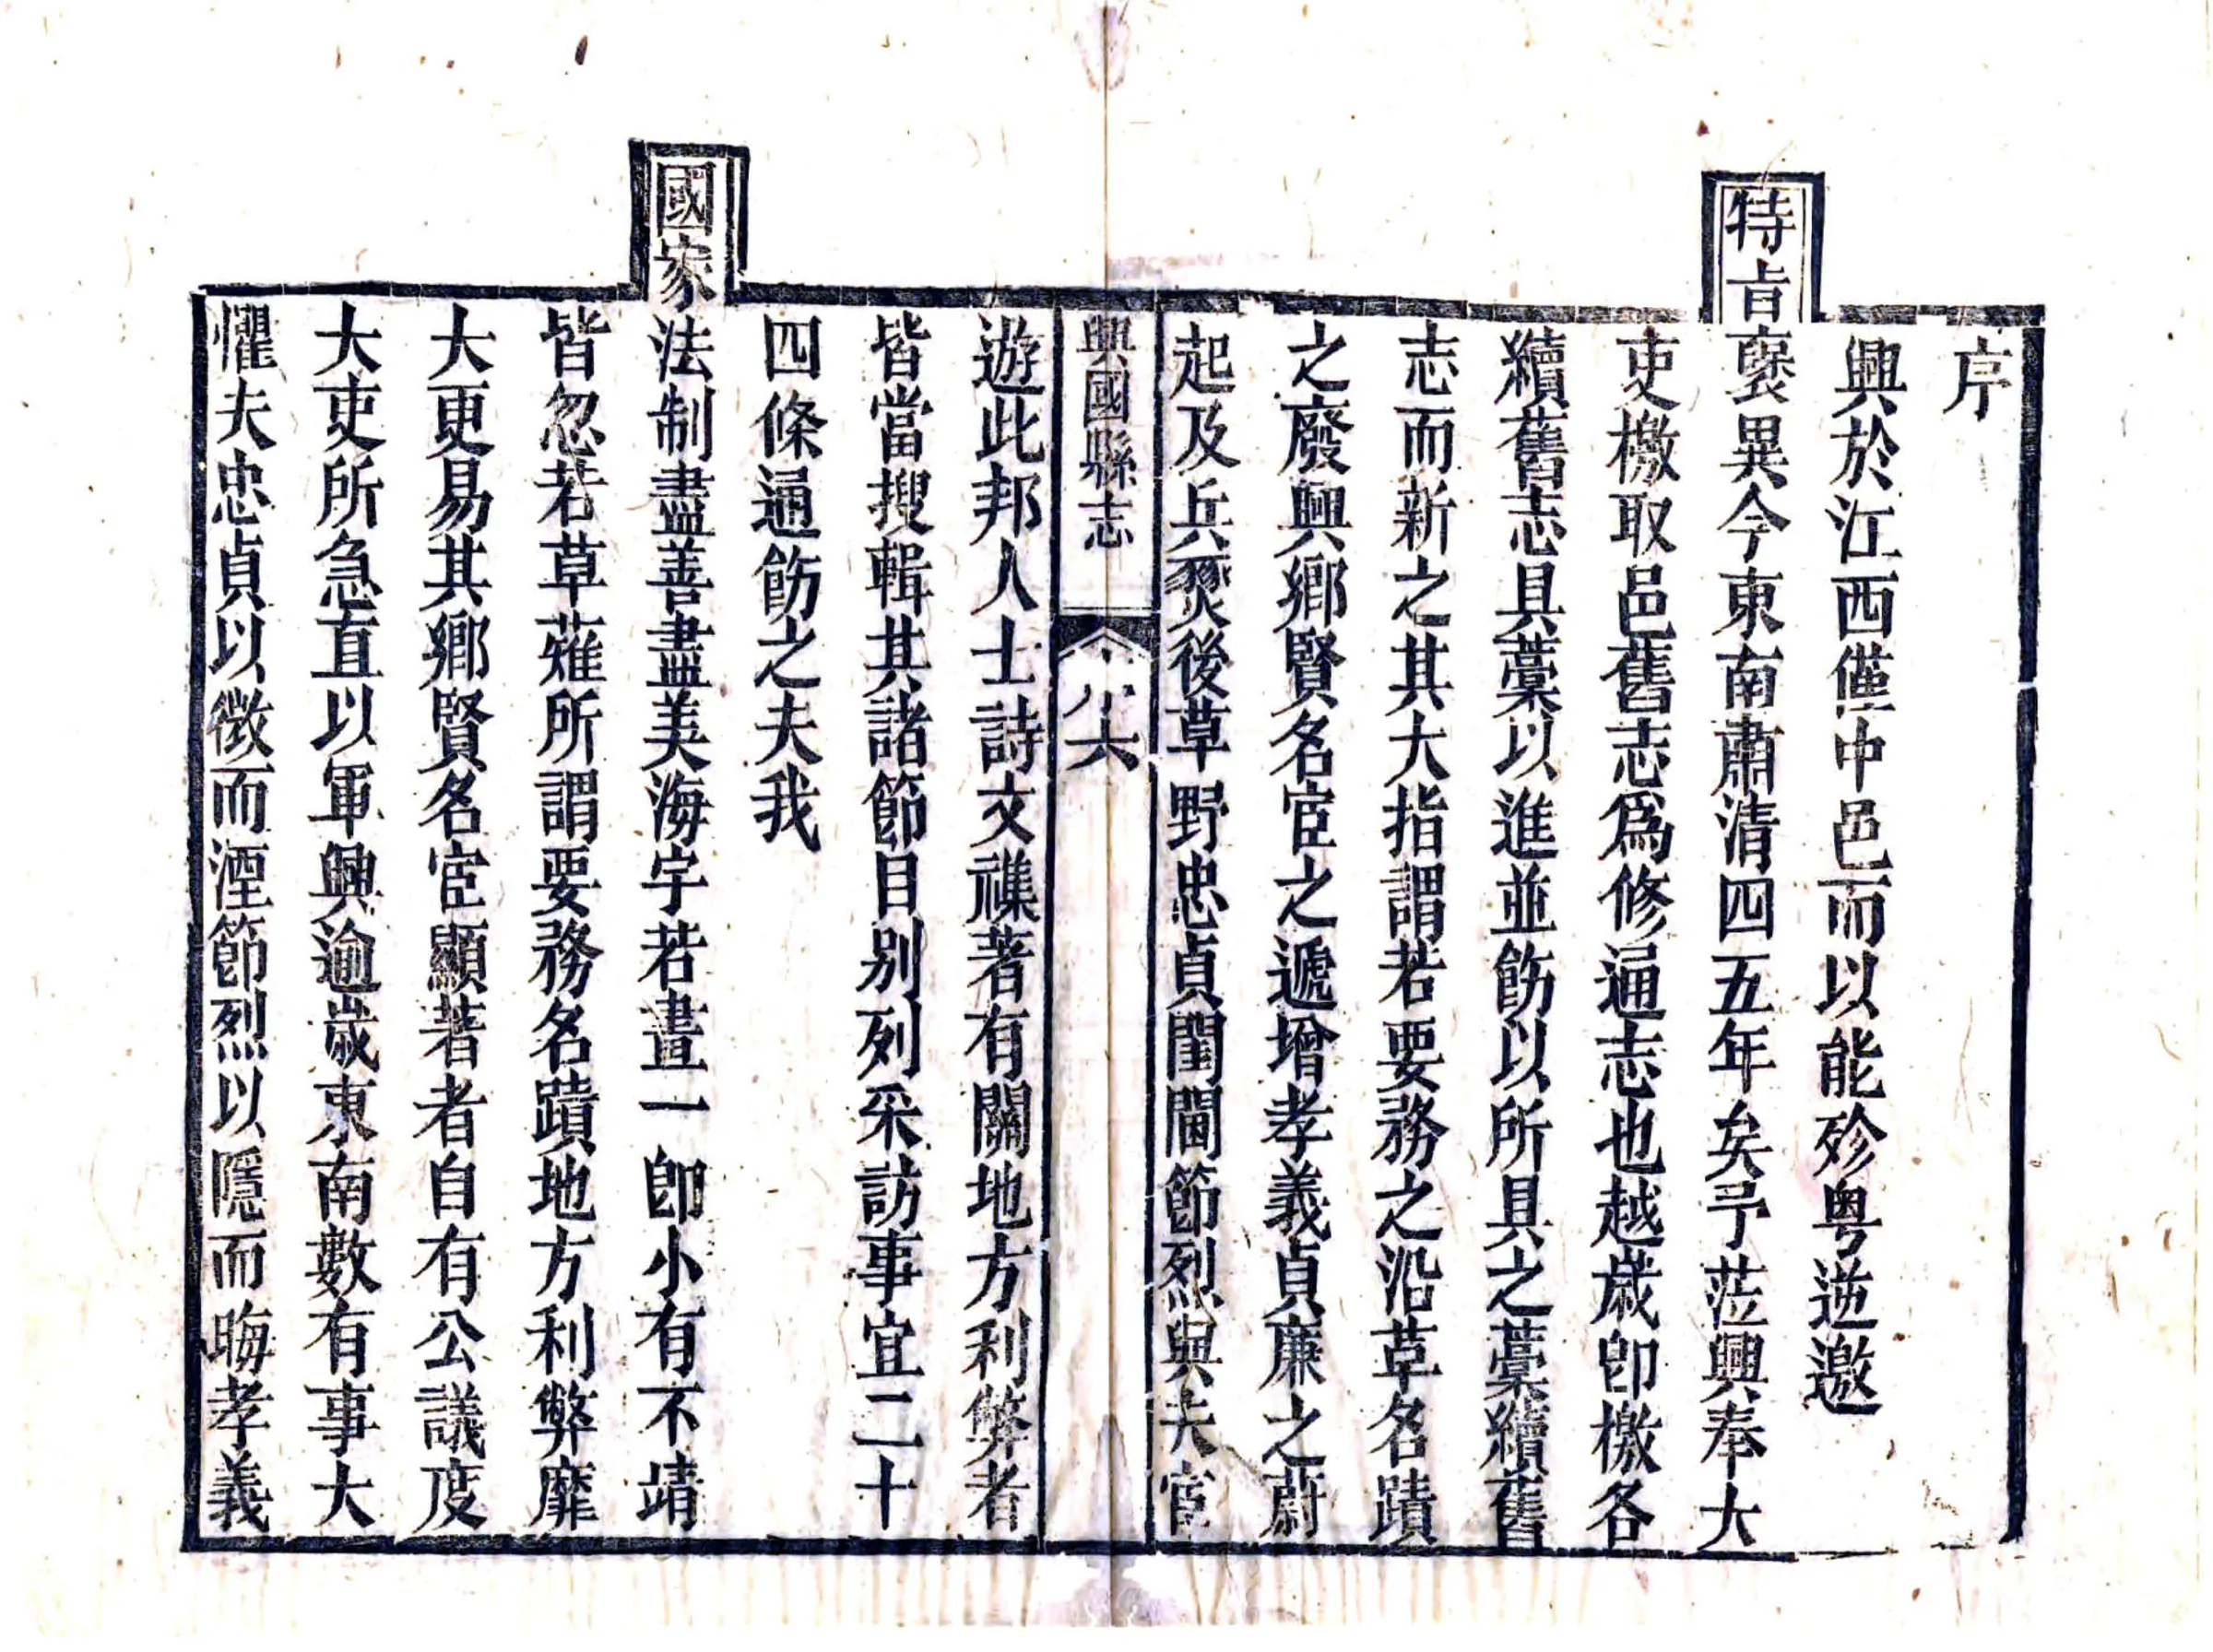 序
興於江西僅中邑而以能殄粵逆邀
特旨褒異今東南肅清四五年矣予蒞興奉大
吏檄取邑舊志爲修通志也越歲卽檄各
續舊志具藁以進並飭以所具之藁續舊
志而新之其大指謂若要務之沿革名蹟
之廢興鄉賢名宦之遞增孝義貞廉之蔚
起及兵燹後草野忠貞閨閫節烈與夫宦
興國縣志
序
六
遊此邦人士詩文襍著有關地方利弊者
皆當搜輯其諸節目別列采訪事宜二十
四條通飭之夫我
國家法制盡善盡美海宇若畫一卽小有不靖
皆忽若草薙所謂要務名蹟地方利弊靡
大更易其鄉賢名宦顯著者自有公議度
大吏所急直以軍興逾歲東南數有事大
懼夫忠貞以微而湮節烈以隱而晦孝義